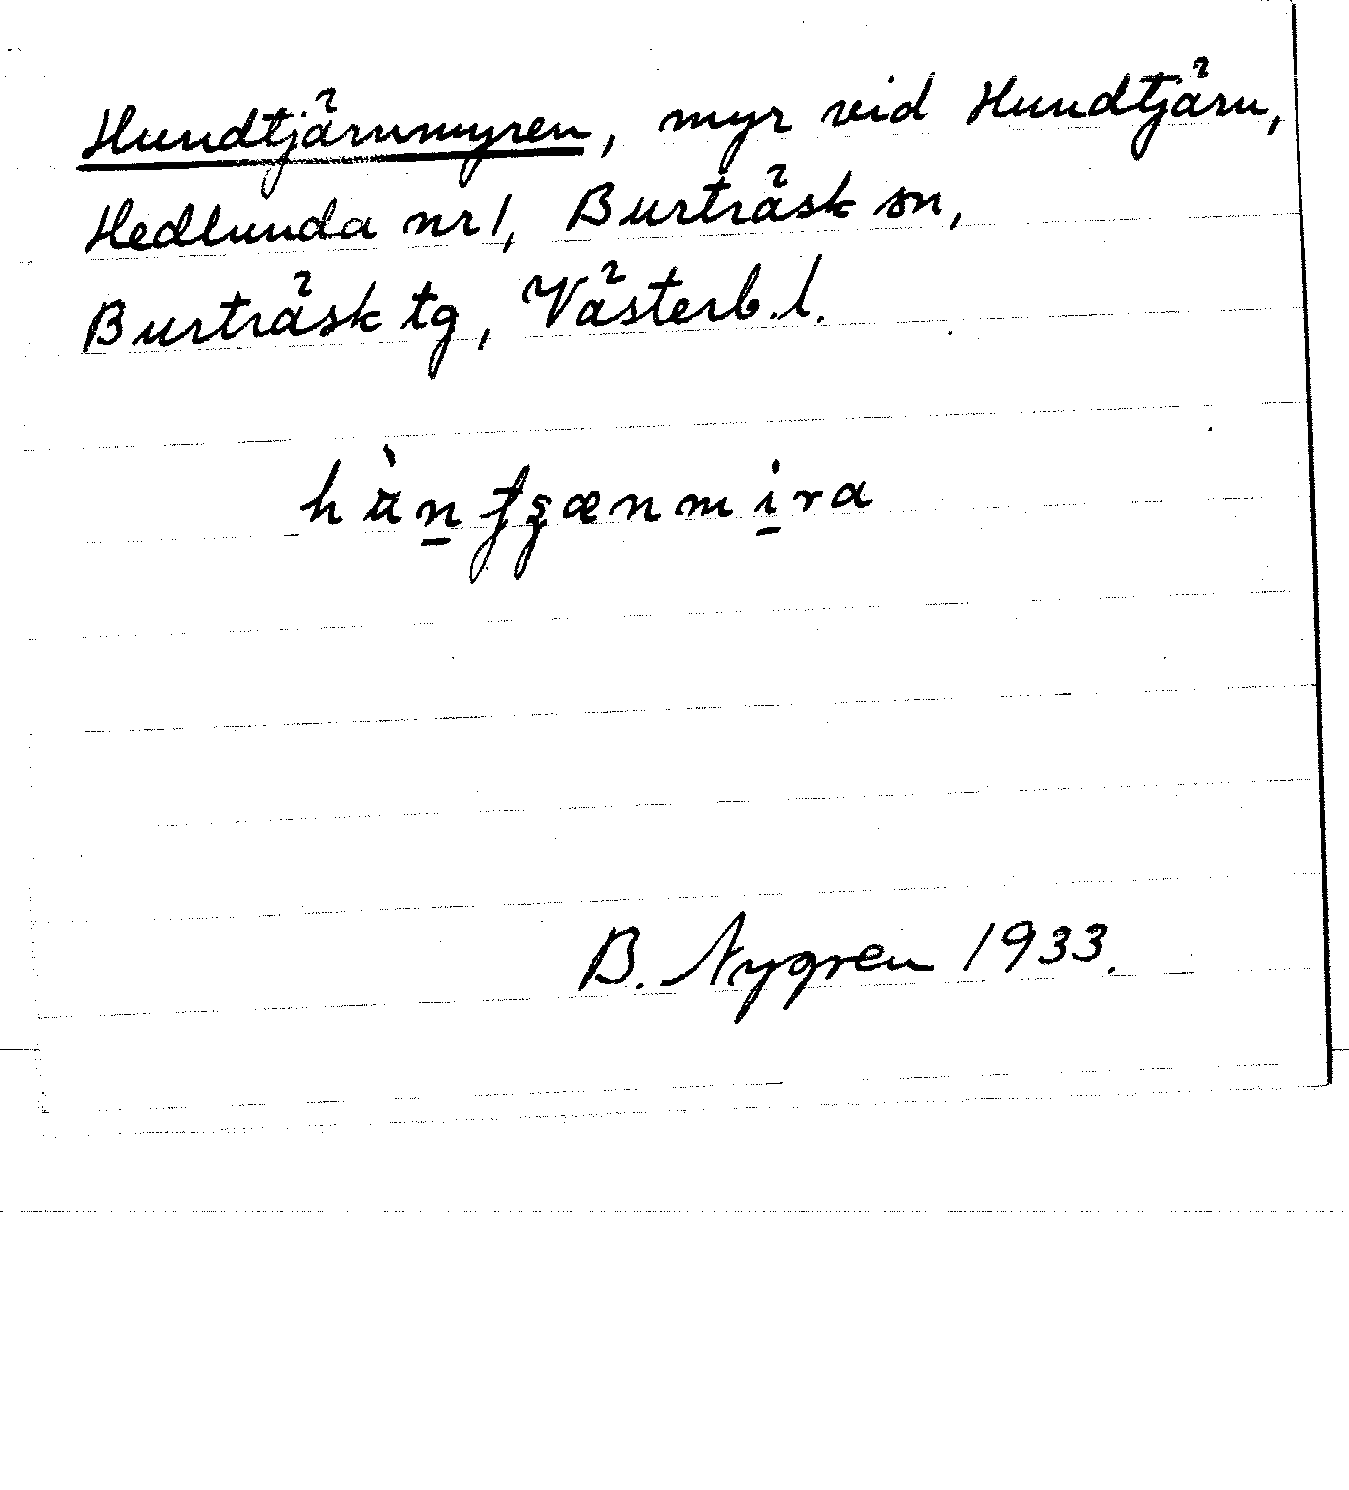 Hundtjärnmyren, myr vid Hundtjärn,
Hedlunda nr 1, Burträsk sn,
Burträsk tg, Västerb. l.
B. Nygren 1933.